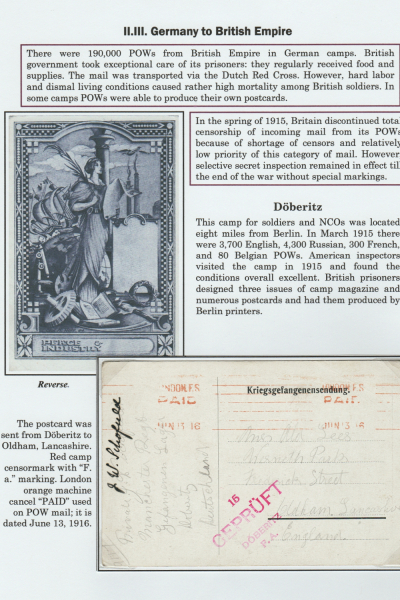 II.III. Germany to British Empire
There were 190,000 POWs from British Empire in German camps. British
government took exceptional care of its prisoners: they regularly received food and
supplies. The mail was transported via the Dutch Red Cross. However, hard labor
and dismal living conditions caused rather high mortality among British soldiers. In
some camps POWs were able to produce their own postcards.
In the spring of 1915, Britain discontinued total
censorship of incoming mail from its POWs
because of shortage of censors and relatively
low priority of this category of mail. However
selective secret inspection remained in effect till
the end of the war without special markings.
Döberitz
This camp for soldiers and NCOs was located
eight miles from Berlin. In March 1915 there
were 3,700 English, 4,300 Russian, 300 French,
and 80 Belgian POWs. American inspectors
visited the camp in 1915 and found the
conditions overall excellent. British prisoners
designed three issues of camp magazine and
numerous postcards and had them produced by
Berlin printers.
PEACE
INDUSTRY
Reverse.
The postcard was
sent from Döberitz to
Oldham, Lancashire.
Red camp
censormark with “F.
a.” marking. London
orange machine
cancel “PAID” used
on POW mail; it is
dated June 13, 1916.
Kriegsgefangenensendung.
PAID
J. W. Schofield
Street
Oldham
England
15
GEPRÜFT
DÖBERITZ
F.A.